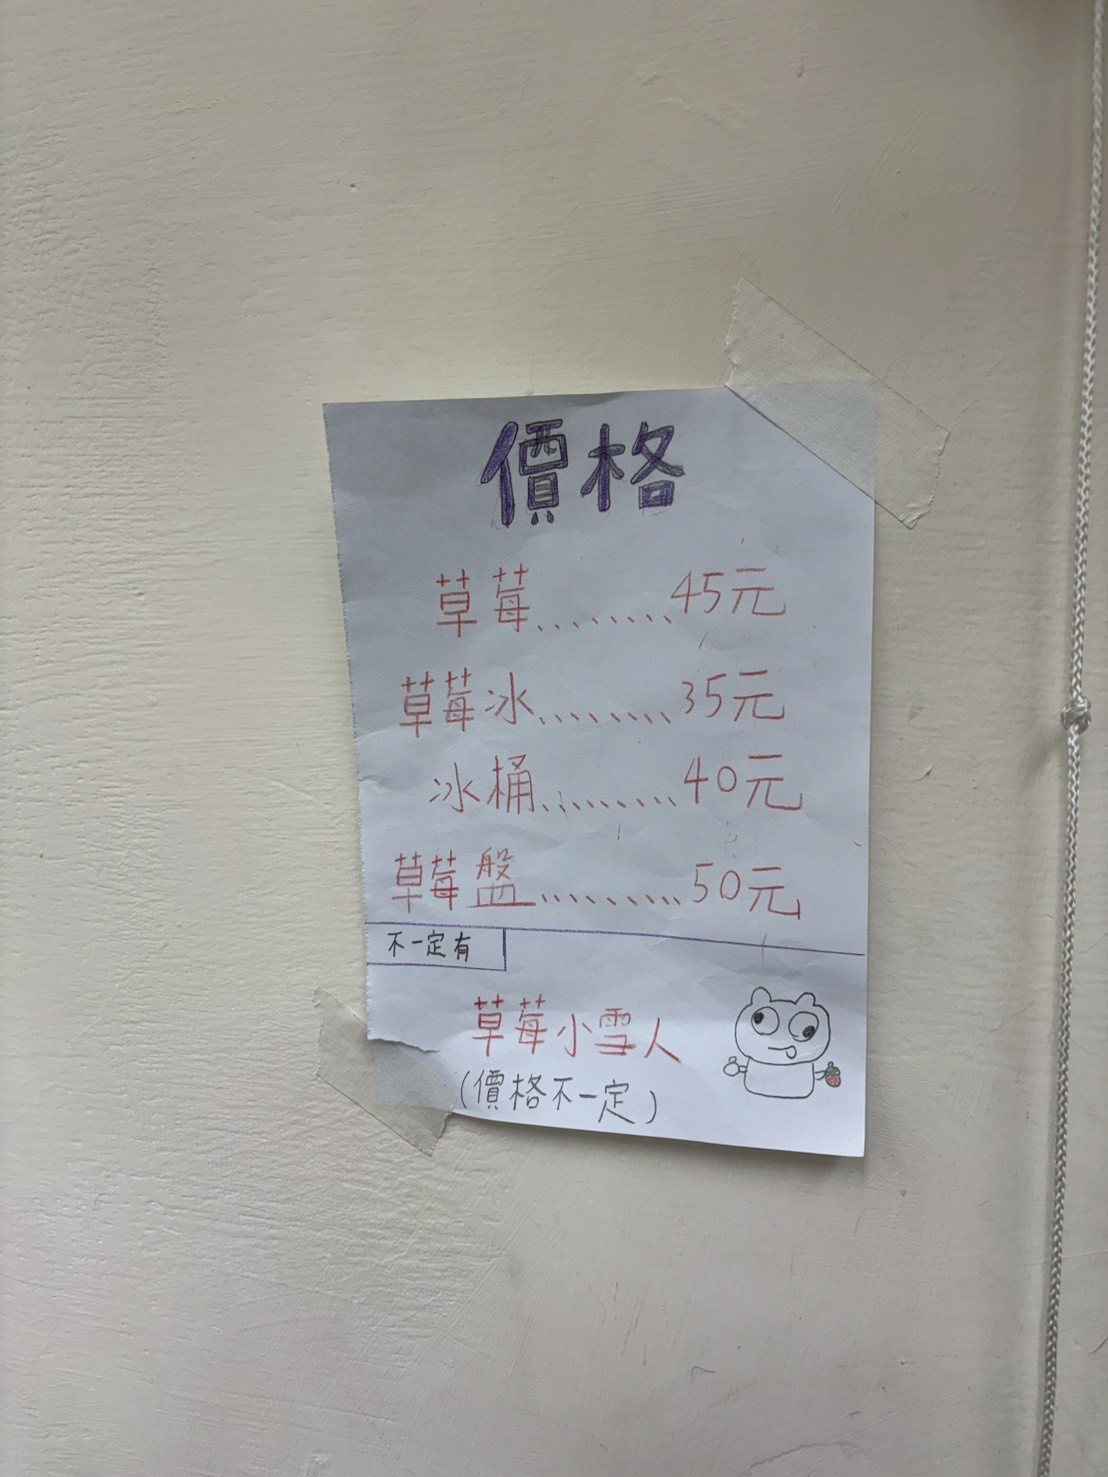 價格
草莓........45元
草莓冰........35元
冰桶.........40元
草莓盤..........50元
不一定有
草莓小雪人
(價格不一定)